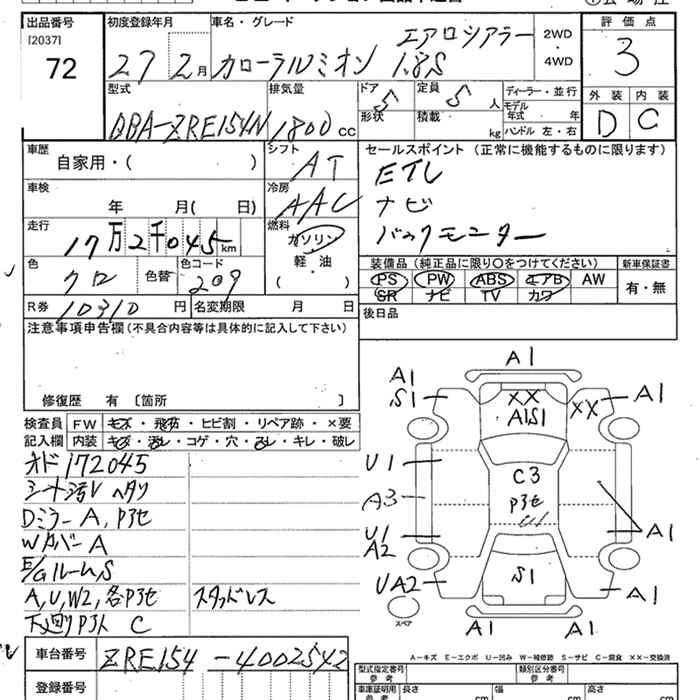 出品番号 初度登録年月 車名・グレード 評価点
[2037] 72 27 2月 カローラルミオン エアロシアラー 1.8S 2WD・4WD 3
型式 排気量 ドア 5 定員 5人 ディーラー・並行 外装 内装
DBA-ZRE154N 1800cc 形状 積載 kg モデル年式 年 ハンドル 左・右 D C
車歴 シフト セールスポイント (正常に機能するものに限ります)
自家用・( ) AT ETC
車検 冷房 ナビ
年 月( 日) AAC バックモニター
走行 燃料
17万2千045km ガソリン
色 色替 色コード 軽・油 装備品 (純正品に限り○をつけてください) 新車保証書
クロ 209 ( ) PS PW ABS エアB AW 有・無
R券 10310円 名変期限 月 日 SR ナビ TV カワ
注意事項申告欄 (不具合内容等は具体的に記入して下さい) 後日品
修復歴 有 〔箇所 〕
検査員 FW キズ・飛石・ヒビ割・リペア跡・×要
記入欄 内装 キズ・汚レ・コゲ・穴・スレ・キレ・破レ
オド172045
シート汚レ ヘタリ
Dミラー A, P3セ
WカバーA
E/GルームS
A,U,W2,各P3セ スタッドレス
下廻りP3ト C
A1
A1 S1 XX XX A1
A1S1
U1 C3
A3 P3セ
U1 A2 A1
UA2 S1 A1
スペア A1 A1
A-キズ E-エクボ U-凹み W-補修跡 S-サビ C-腐食 XX-交換済
車台番号 ZRE154-4002542 型式指定番号 参考 類別区分番号 参考
登録番号 車庫証明用 参考 長さ cm 幅 cm 高さ cm